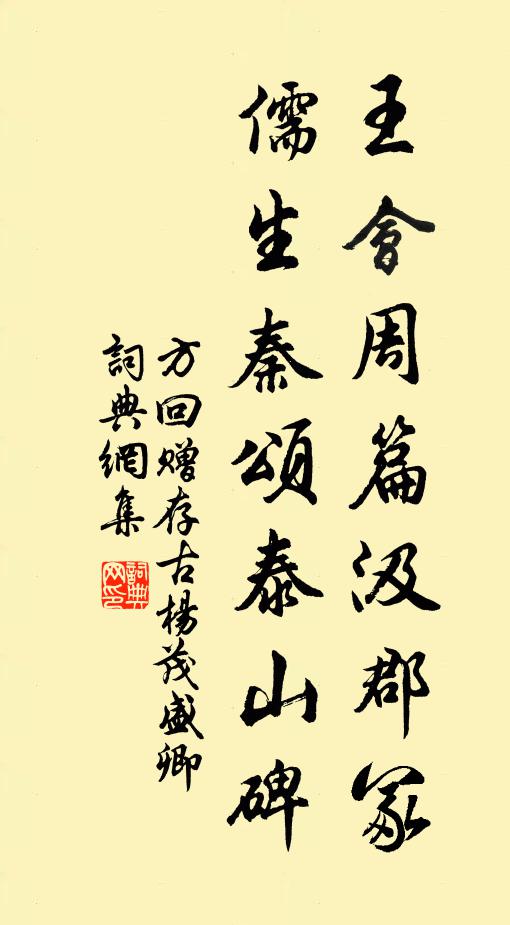 王會周篇汲郡冢
儒生秦頌泰山碑
方回贈存古楊茂盛卿
詞典網集
詞典網印